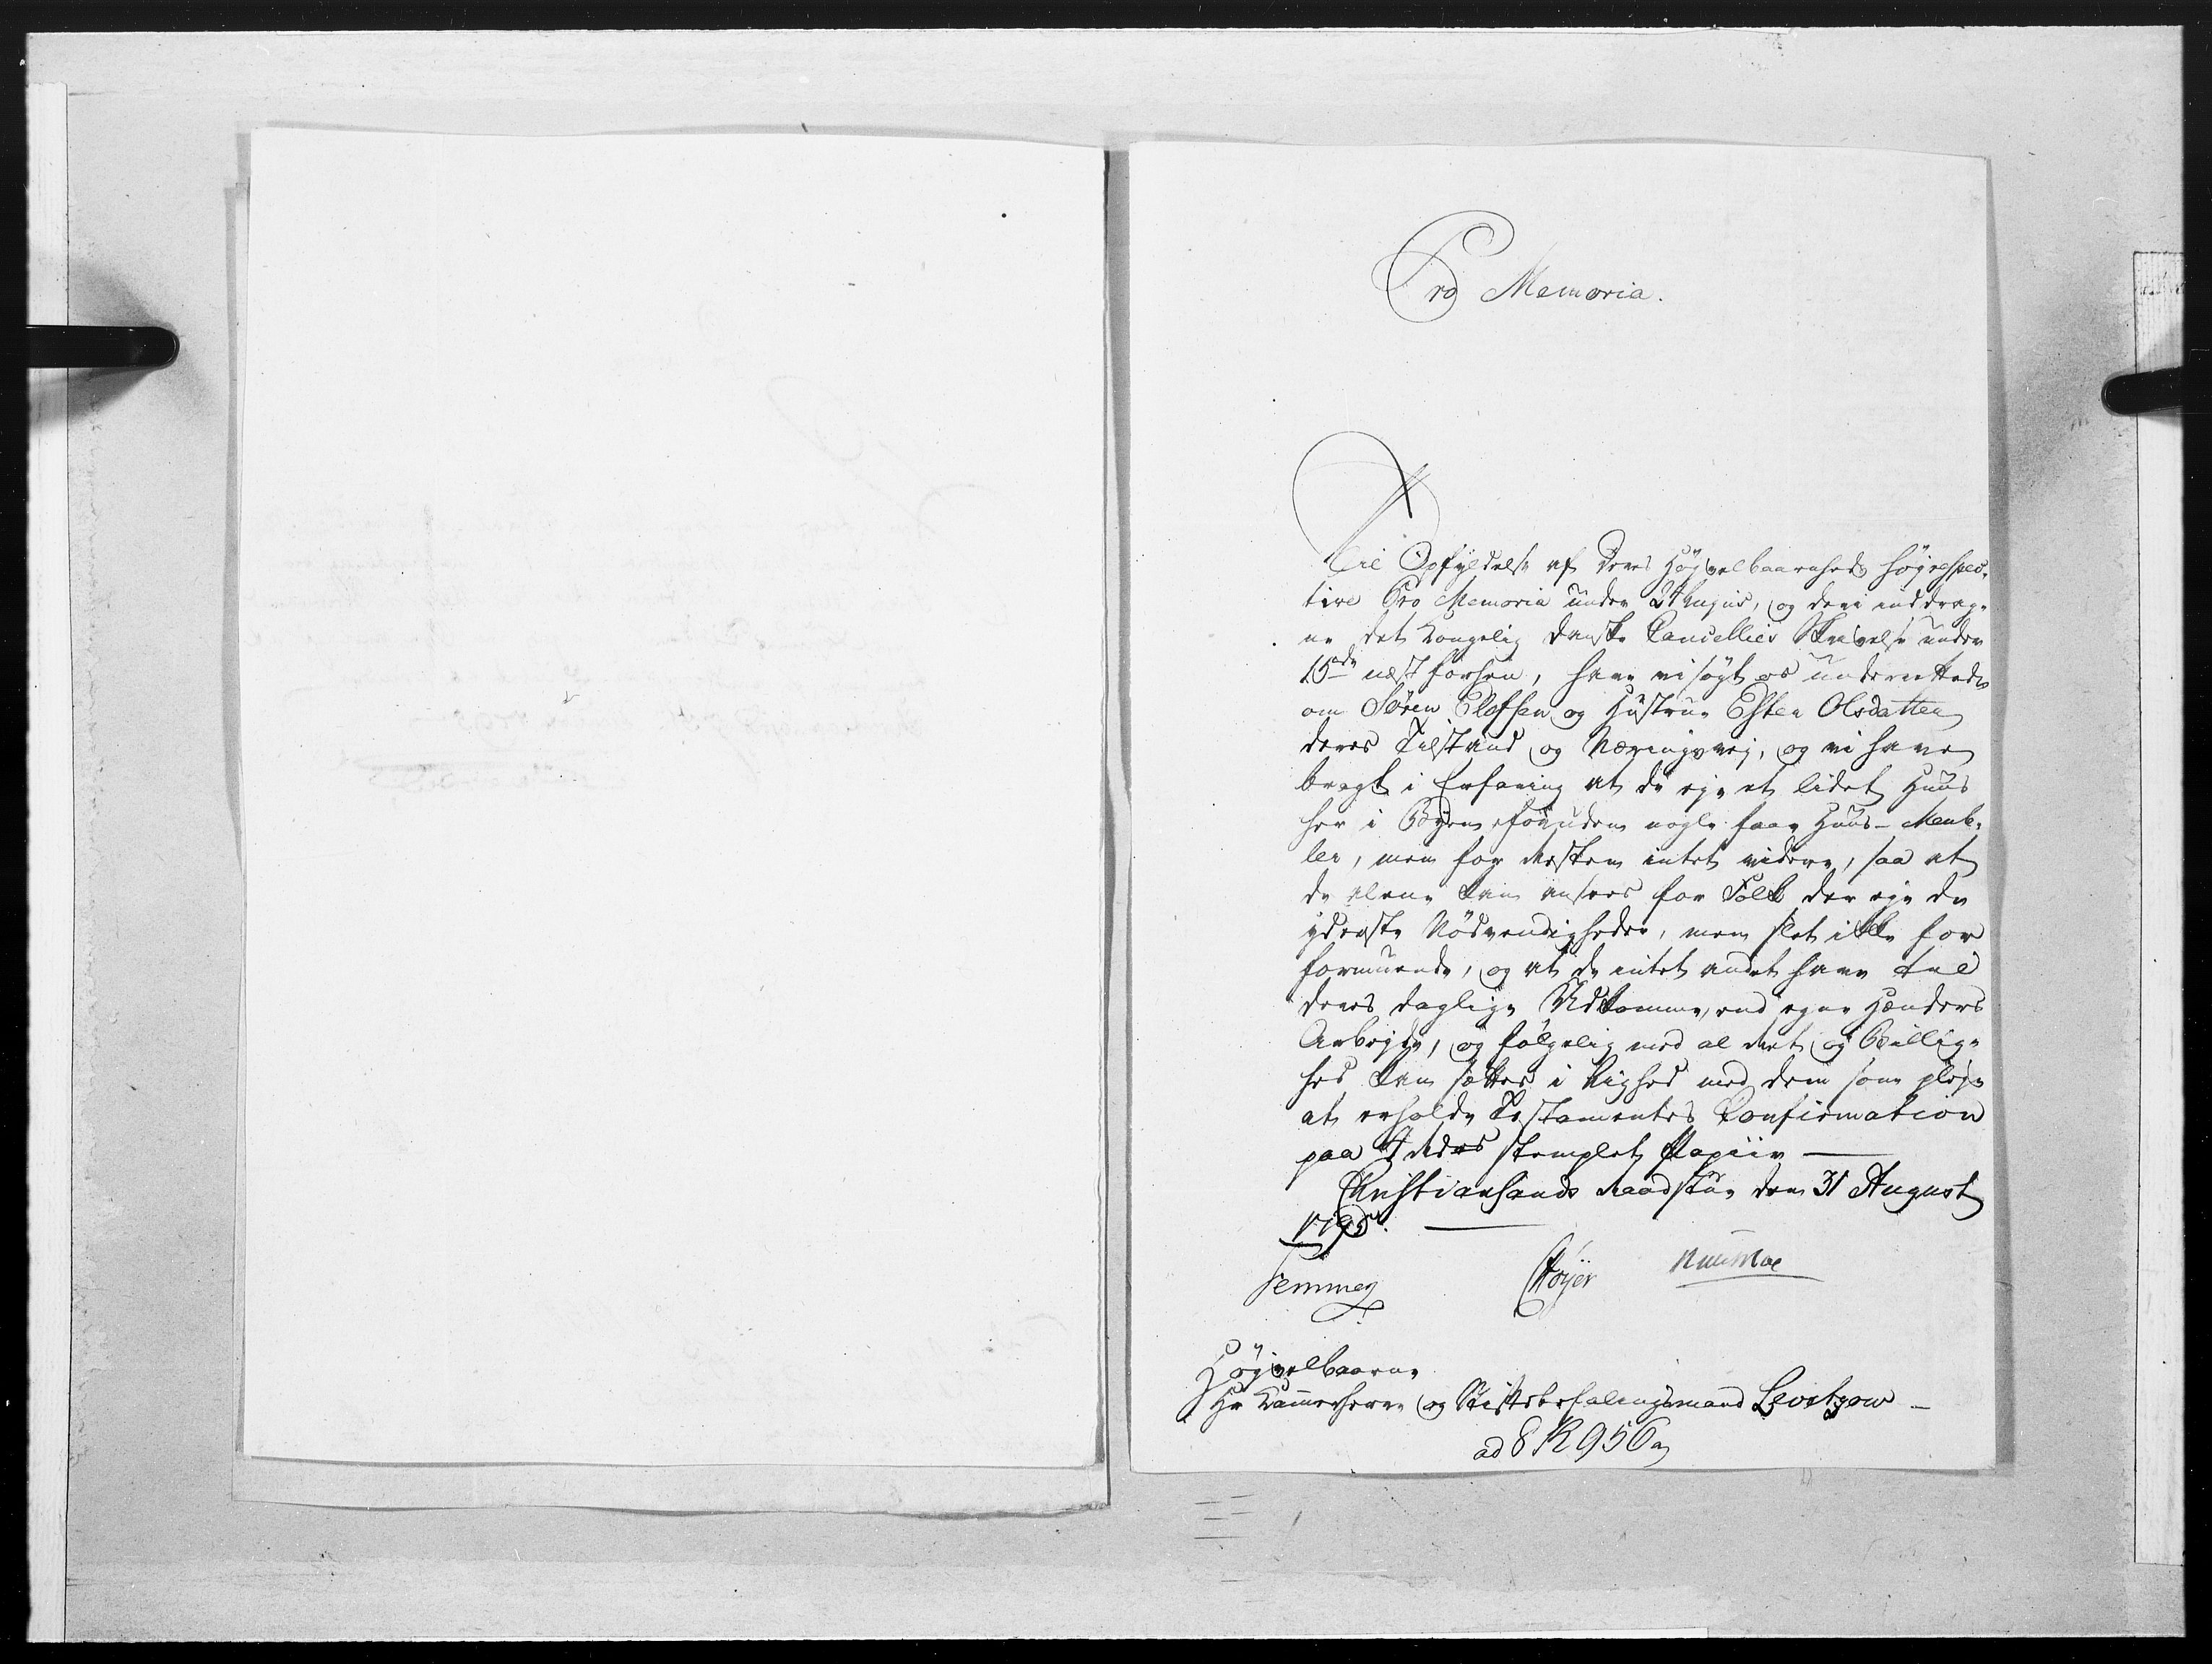 Pro Memoria.
Til Opfyldelse af Deres Høyvelbaarenheds høyrespec-
tive Pro Memoria under 24 hujus, og deri inddrag-
ne det Kongelig Danske Cancellies Skrivelse under
15de næst forhen, have vi søgt os underrettede
om Søren Elefsen og Hustrue Ester Olsdatter
deres Tilstand og Næringsvej, og vi have
bragt i Erfaring at de eje et lidet Huus
her i Byen, foruden nogle faae Huus-Meub-
ler, men for Resten intet videre, saa at
de alene kan ansees for Folk der eje de
yderste Nødvendigheder, men slet ikke for
formuende, og at de intet andet have til
deres daglige Udkomme, end egne Hænders
Arbejde, og følgelig med al Ret og Billig-
hed kan sættes i Lighed med dem som pleje
at erholde Testamenters Confirmation
paa 4 Rdrs stemplet Papiir
Christiansands Raadstue den 31 August
1795.
Høyvelbaarne
Hr Kammerherre og Stiftbefalingsmand Levetzow
ad 8 R 956 a